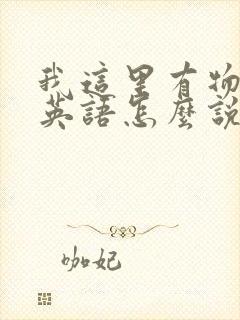 我這里有物
英語怎麼說
咖妃